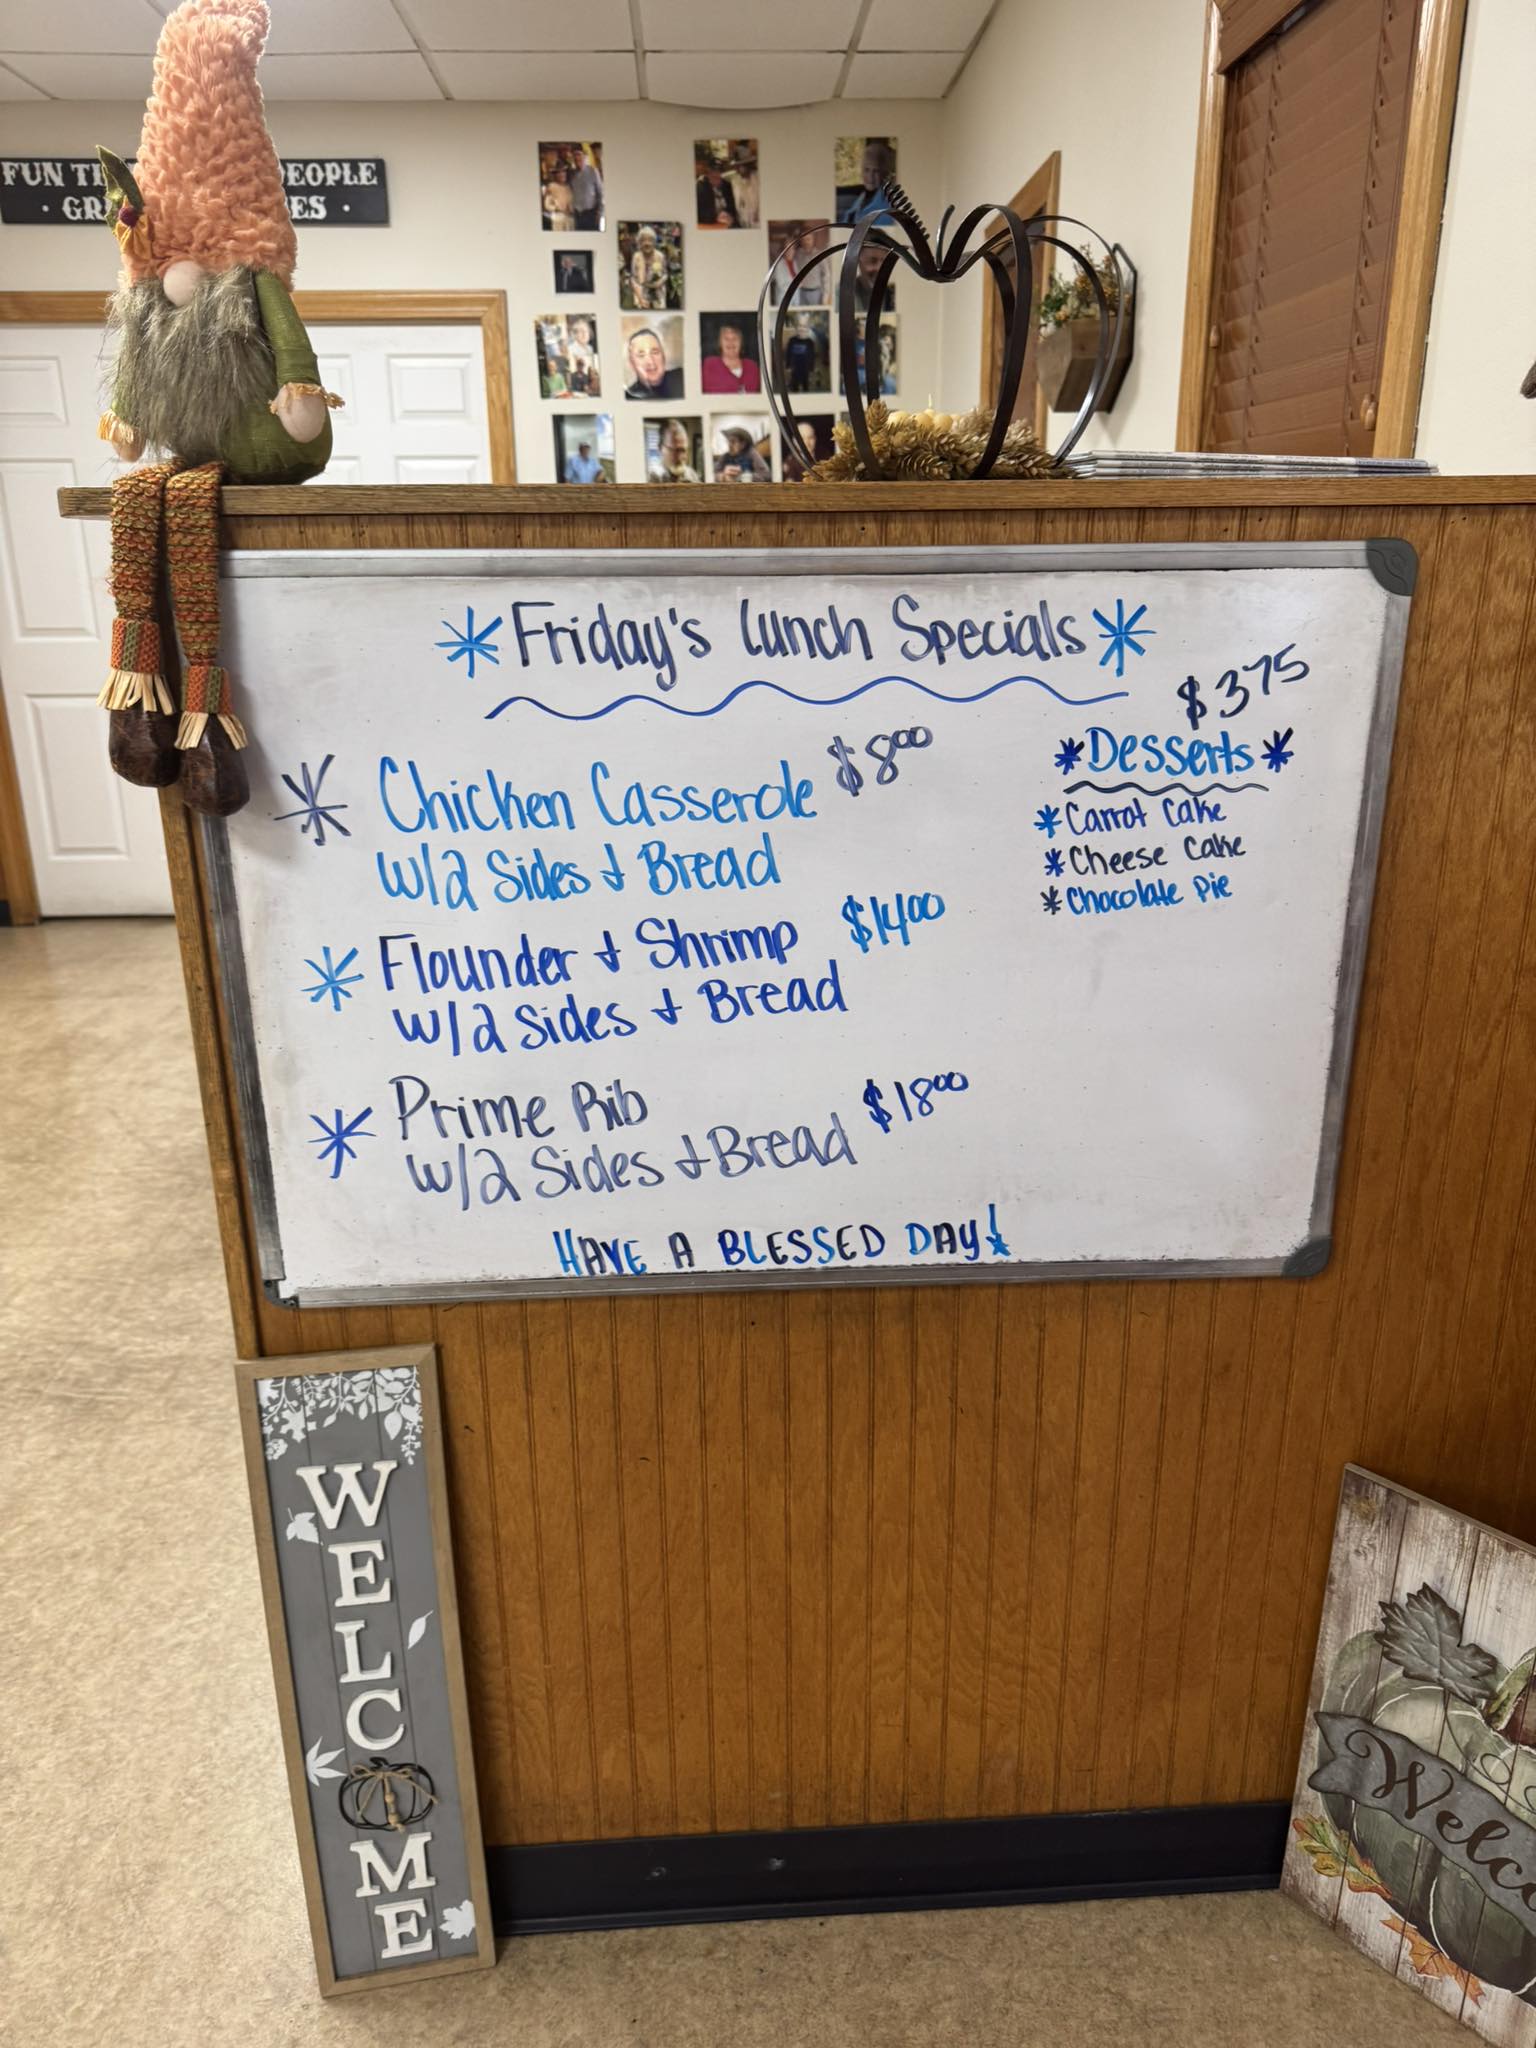 FUN TI EOPLE
· GR ES ·
Friday's Lunch Specials
$3.75
Desserts
Carrot Cake
Cheese Cake
Chocolate Pie
Chicken Casserole $8.00
w/2 Sides & Bread
Flounder & Shrimp $14.00
w/2 Sides & Bread
Prime Rib
w/2 Sides & Bread $18.00
HAVE A BLESSED DAY!
WELCOME
Welco